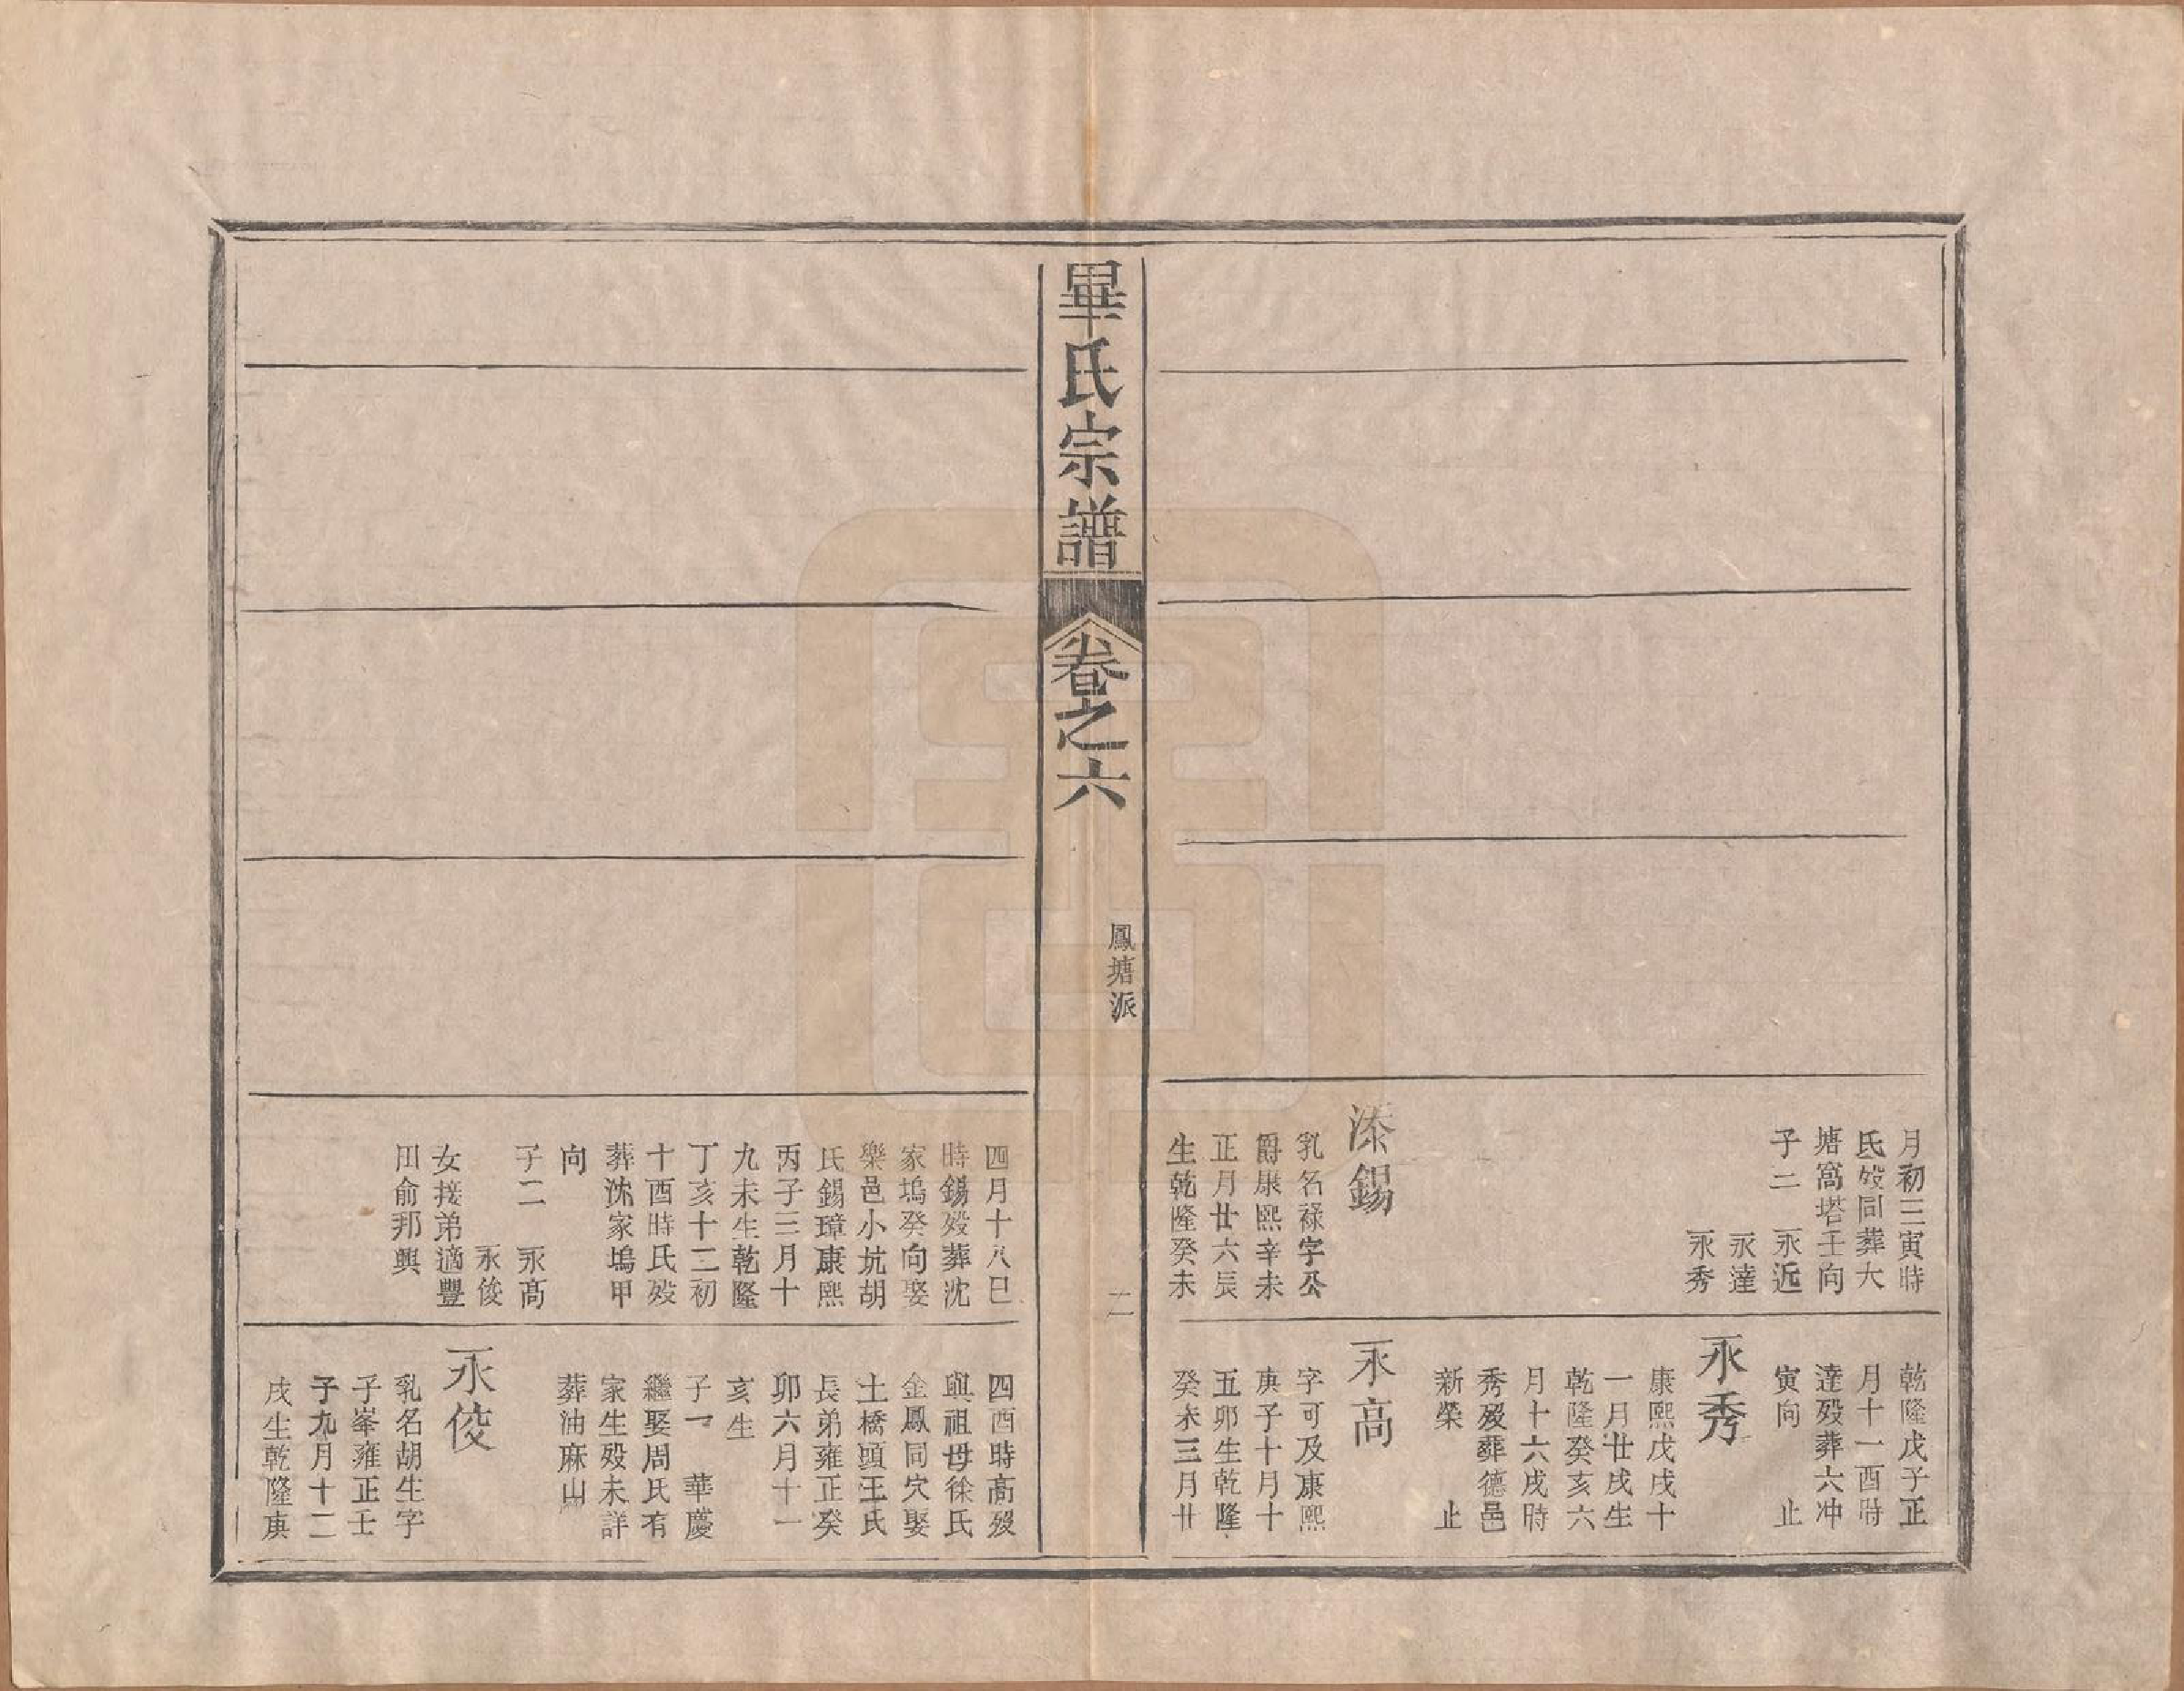 月初三寅時
氏歿同葬大
塘窩塔壬向
子二　永近
永達
永秀
添錫
乳名祿字公
爵康熙辛未
正月廿六辰
生乾隆癸未
乾隆戊子正
月十一酉時
達歿葬六冲
寅向　　止
永秀
康熙戊戌十
一月廿戌生
乾隆癸亥六
月十六戌時
秀歿葬德邑
新榮　　止
永高
字可及康熙
庚子十月十
五卯生乾隆
癸未三月廿
畢氏宗譜
卷之六
鳳塘派
二
四月十八巳
時錫歿葬沈
家塢癸向娶
樂邑小坑胡
氏錫璋康熙
丙子三月十
九未生乾隆
丁亥十二初
十酉時氏歿
葬沈家塢甲
向
子二　永高
永俊
女接弟適豐
田俞邦興
四酉時高歿
與祖母徐氏
金鳳同穴娶
土橋頭王氏
長弟雍正癸
卯六月十一
亥生
子一　華慶
繼娶周氏有
家生歿未詳
葬油麻山
永俊
乳名胡生字
子峯雍正壬
子九月十二
戌生乾隆庚